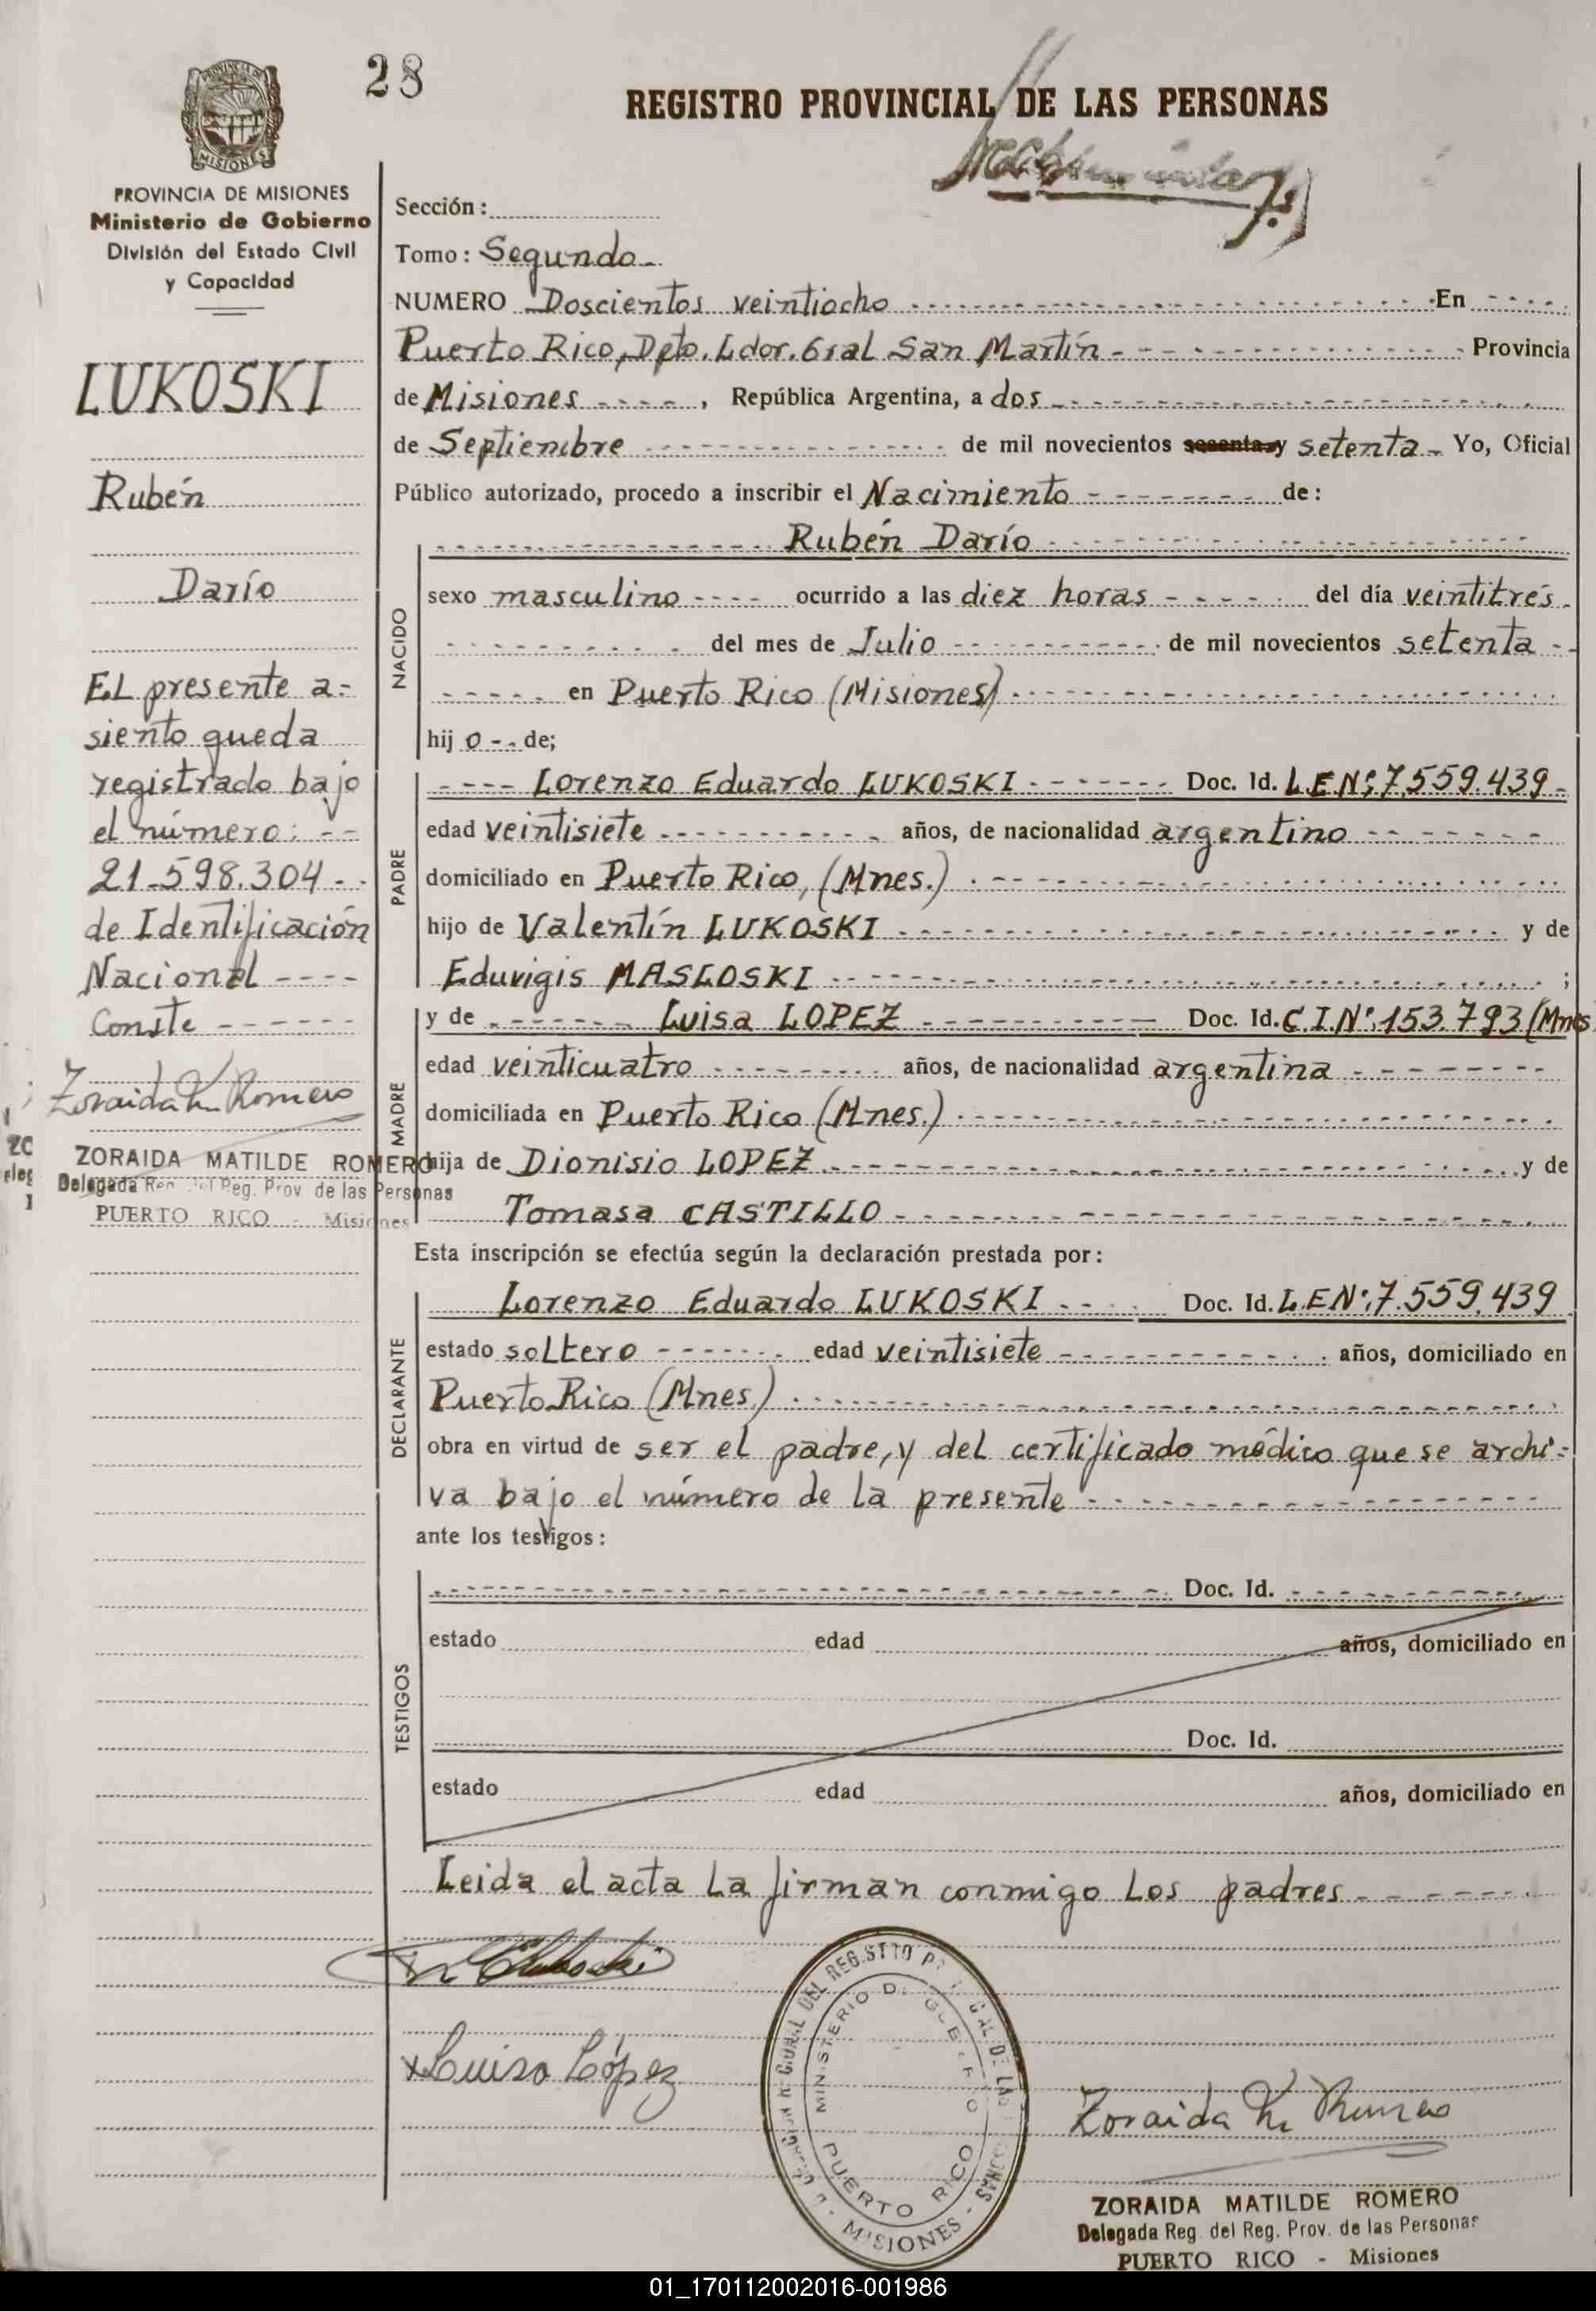 28
REGISTRO PROVINCIAL DE LAS PERSONAS
PROVINCIA DE MISIONES
Ministerio de Gobierno
División del Estado Civil
y Capacidad
LUKOSKI
Rubén
Darío
EL presente a=
siento queda
registrado bajo
el número: --
21-598.304-.
de Identificación
Nacional ----
Conste ------
Zoraida M Romero
ZORAIDA MATILDE ROMERO
Delegada Reg. del Reg. Prov. de las Personas
PUERTO RICO - Misiones
Sección:
Tomo: Segundo-
NUMERO Doscientos veintiocho En
Puerto Rico, Dpto. Ldor. Gral San Martín - Provincia
de Misiones ----, República Argentina, a dos
de Septiembre de mil novecientos sesenta y setenta - Yo, Oficial
Público autorizado, procedo a inscribir el Nacimiento de:
NACIDO
Rubén Darío
sexo masculino ---- ocurrido a las diez horas ---- del día veintitrés-
del mes de Julio de mil novecientos setenta --
en Puerto Rico (Misiones)
hij o -- de;
PADRE
Lorenzo Eduardo LUKOSKI Doc. Id. L.E.Nº: 7.559.439-
edad veintisiete años, de nacionalidad argentino
domiciliado en Puerto Rico, (Mnes.)
hijo de Valentín LUKOSKI y de
Eduvigis MASLOSKI ;
MADRE
y de Luisa LOPEZ Doc. Id. C.I.Nº: 153.793 (Mnes
edad veinticuatro años, de nacionalidad argentina
domiciliada en Puerto Rico (Mnes.)
hija de Dionisio LOPEZ y de
Tomasa CASTILLO
Esta inscripción se efectúa según la declaración prestada por:
DECLARANTE
Lorenzo Eduardo LUKOSKI Doc. Id. L.E.Nº: 7.559.439
estado soltero edad veintisiete años, domiciliado en
Puerto Rico (Mnes.)
obra en virtud de ser el padre, y del certificado médico que se archi=
va bajo el número de la presente
ante los testigos:
TESTIGOS
Doc. Id.
estado edad años, domiciliado en
Doc. Id.
estado edad años, domiciliado en
Leida el acta la firman conmigo los padres
x Luisa López
MINISTERIO DE GOBIERNO
PUERTO RICO
MISIONES
Zoraida M Romero
ZORAIDA MATILDE ROMERO
Delegada Reg. del Reg. Prov. de las Personas
PUERTO RICO - Misiones
01_170112002016-001986